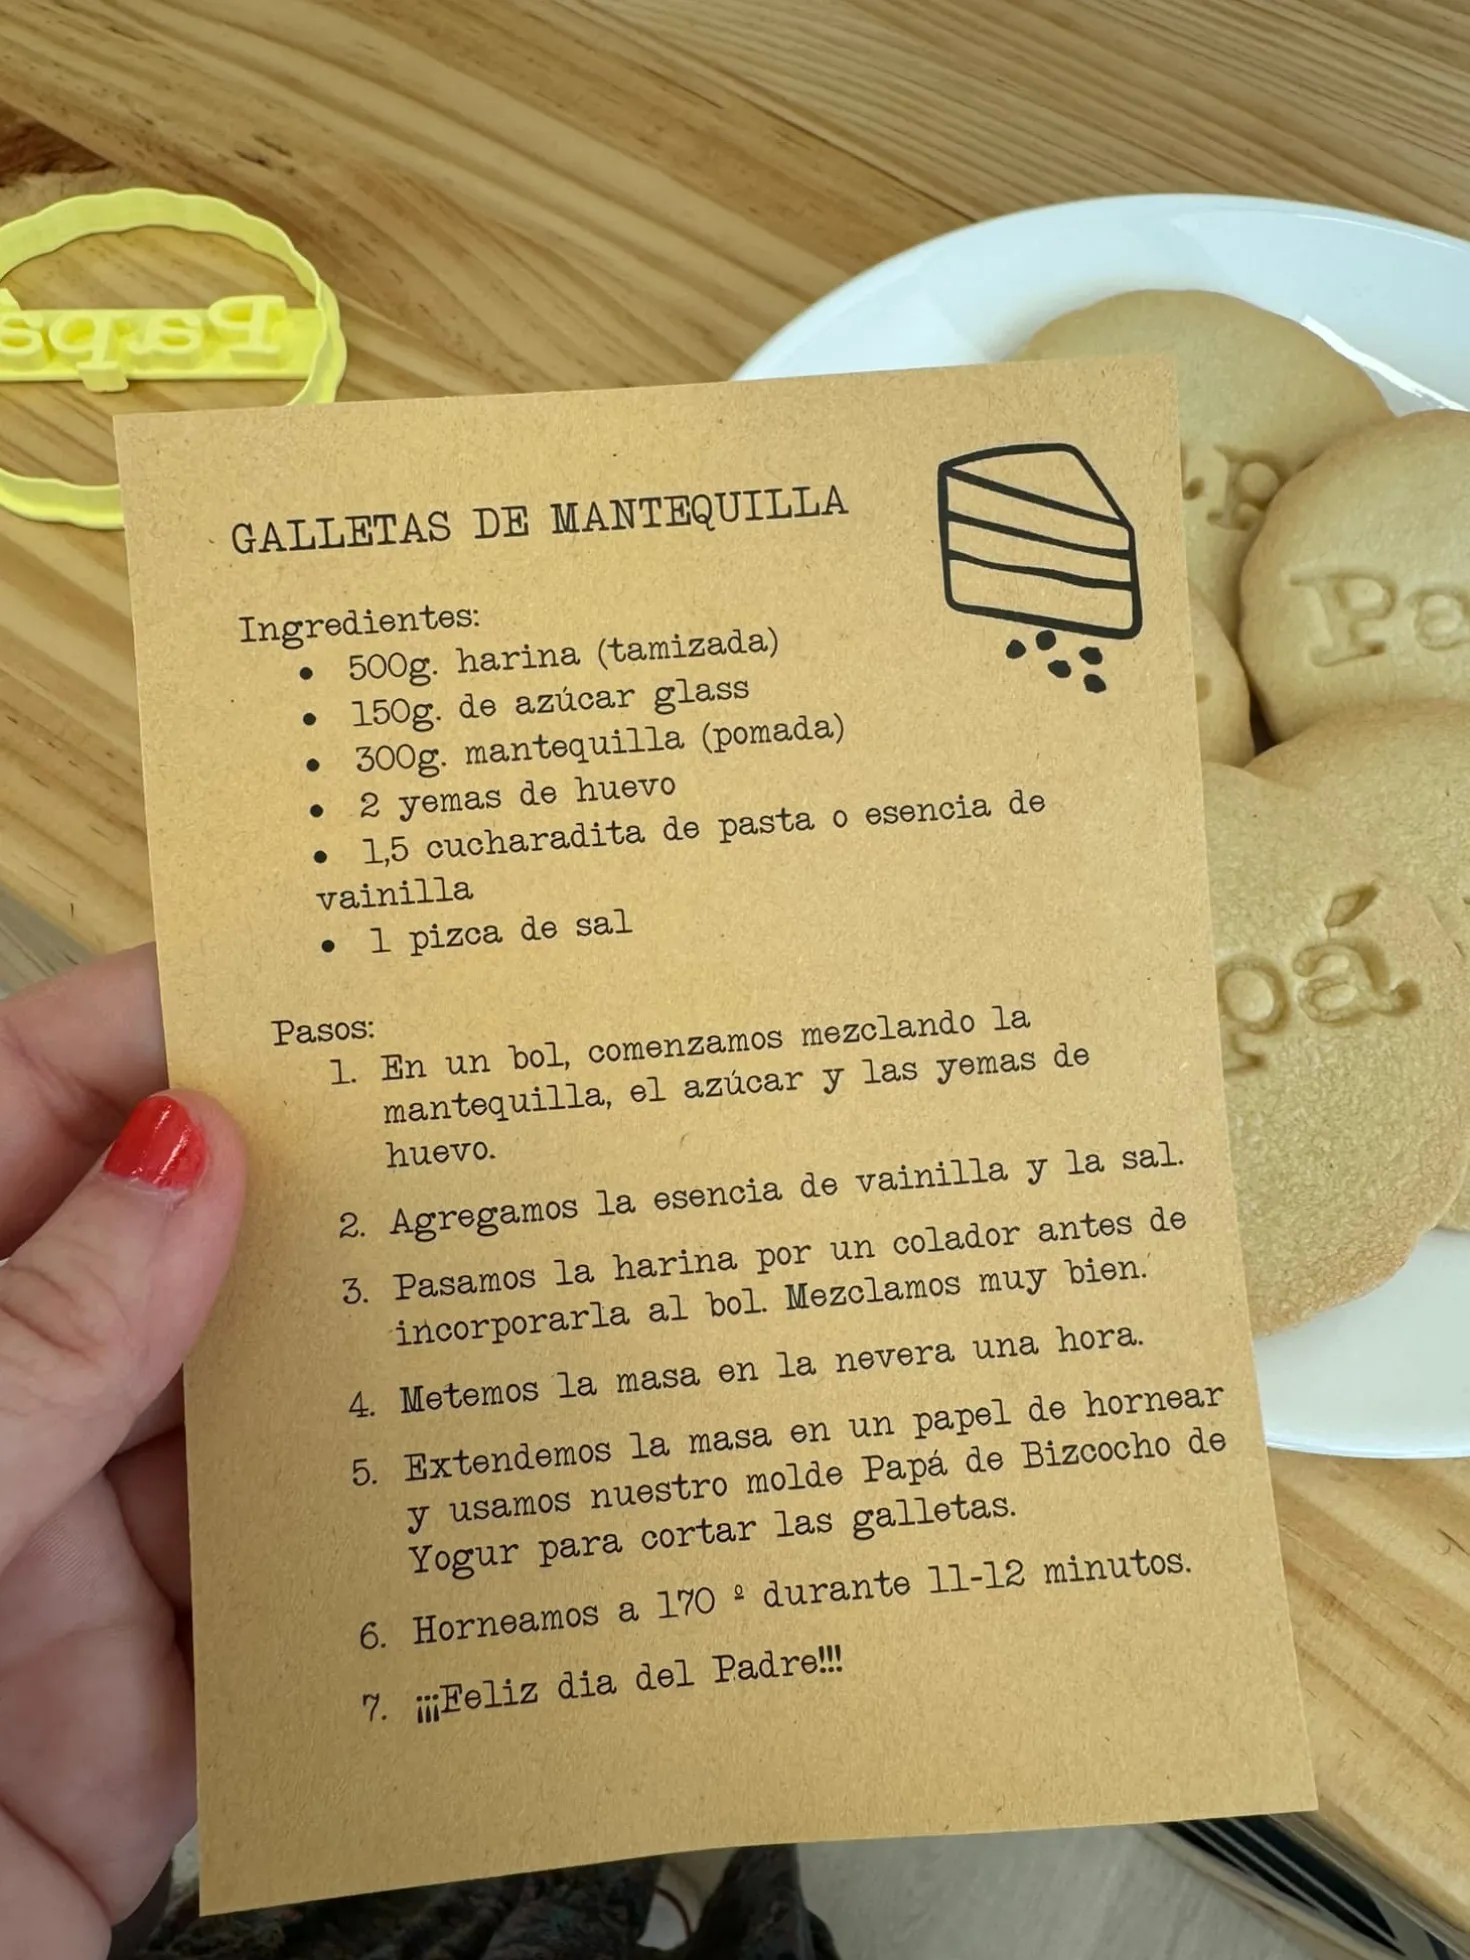 GALLETAS DE MANTEQUILLA
Ingredientes:
• 500g. harina (tamizada)
• 150g. de azúcar glass
• 300g. mantequilla (pomada)
• 2 yemas de huevo
• 1,5 cucharadita de pasta o esencia de
vainilla
• 1 pizca de sal
Pasos:
1. En un bol, comenzamos mezclando la
mantequilla, el azúcar y las yemas de
huevo.
2. Agregamos la esencia de vainilla y la sal.
3. Pasamos la harina por un colador antes de
incorporarla al bol. Mezclamos muy bien.
4. Metemos la masa en la nevera una hora.
5. Extendemos la masa en un papel de hornear
y usamos nuestro molde Papá de Bizcocho de
Yogur para cortar las galletas.
6. Horneamos a 170 º durante 11-12 minutos.
7. ¡¡¡Feliz dia del Padre!!!
Papá
Pa
pá